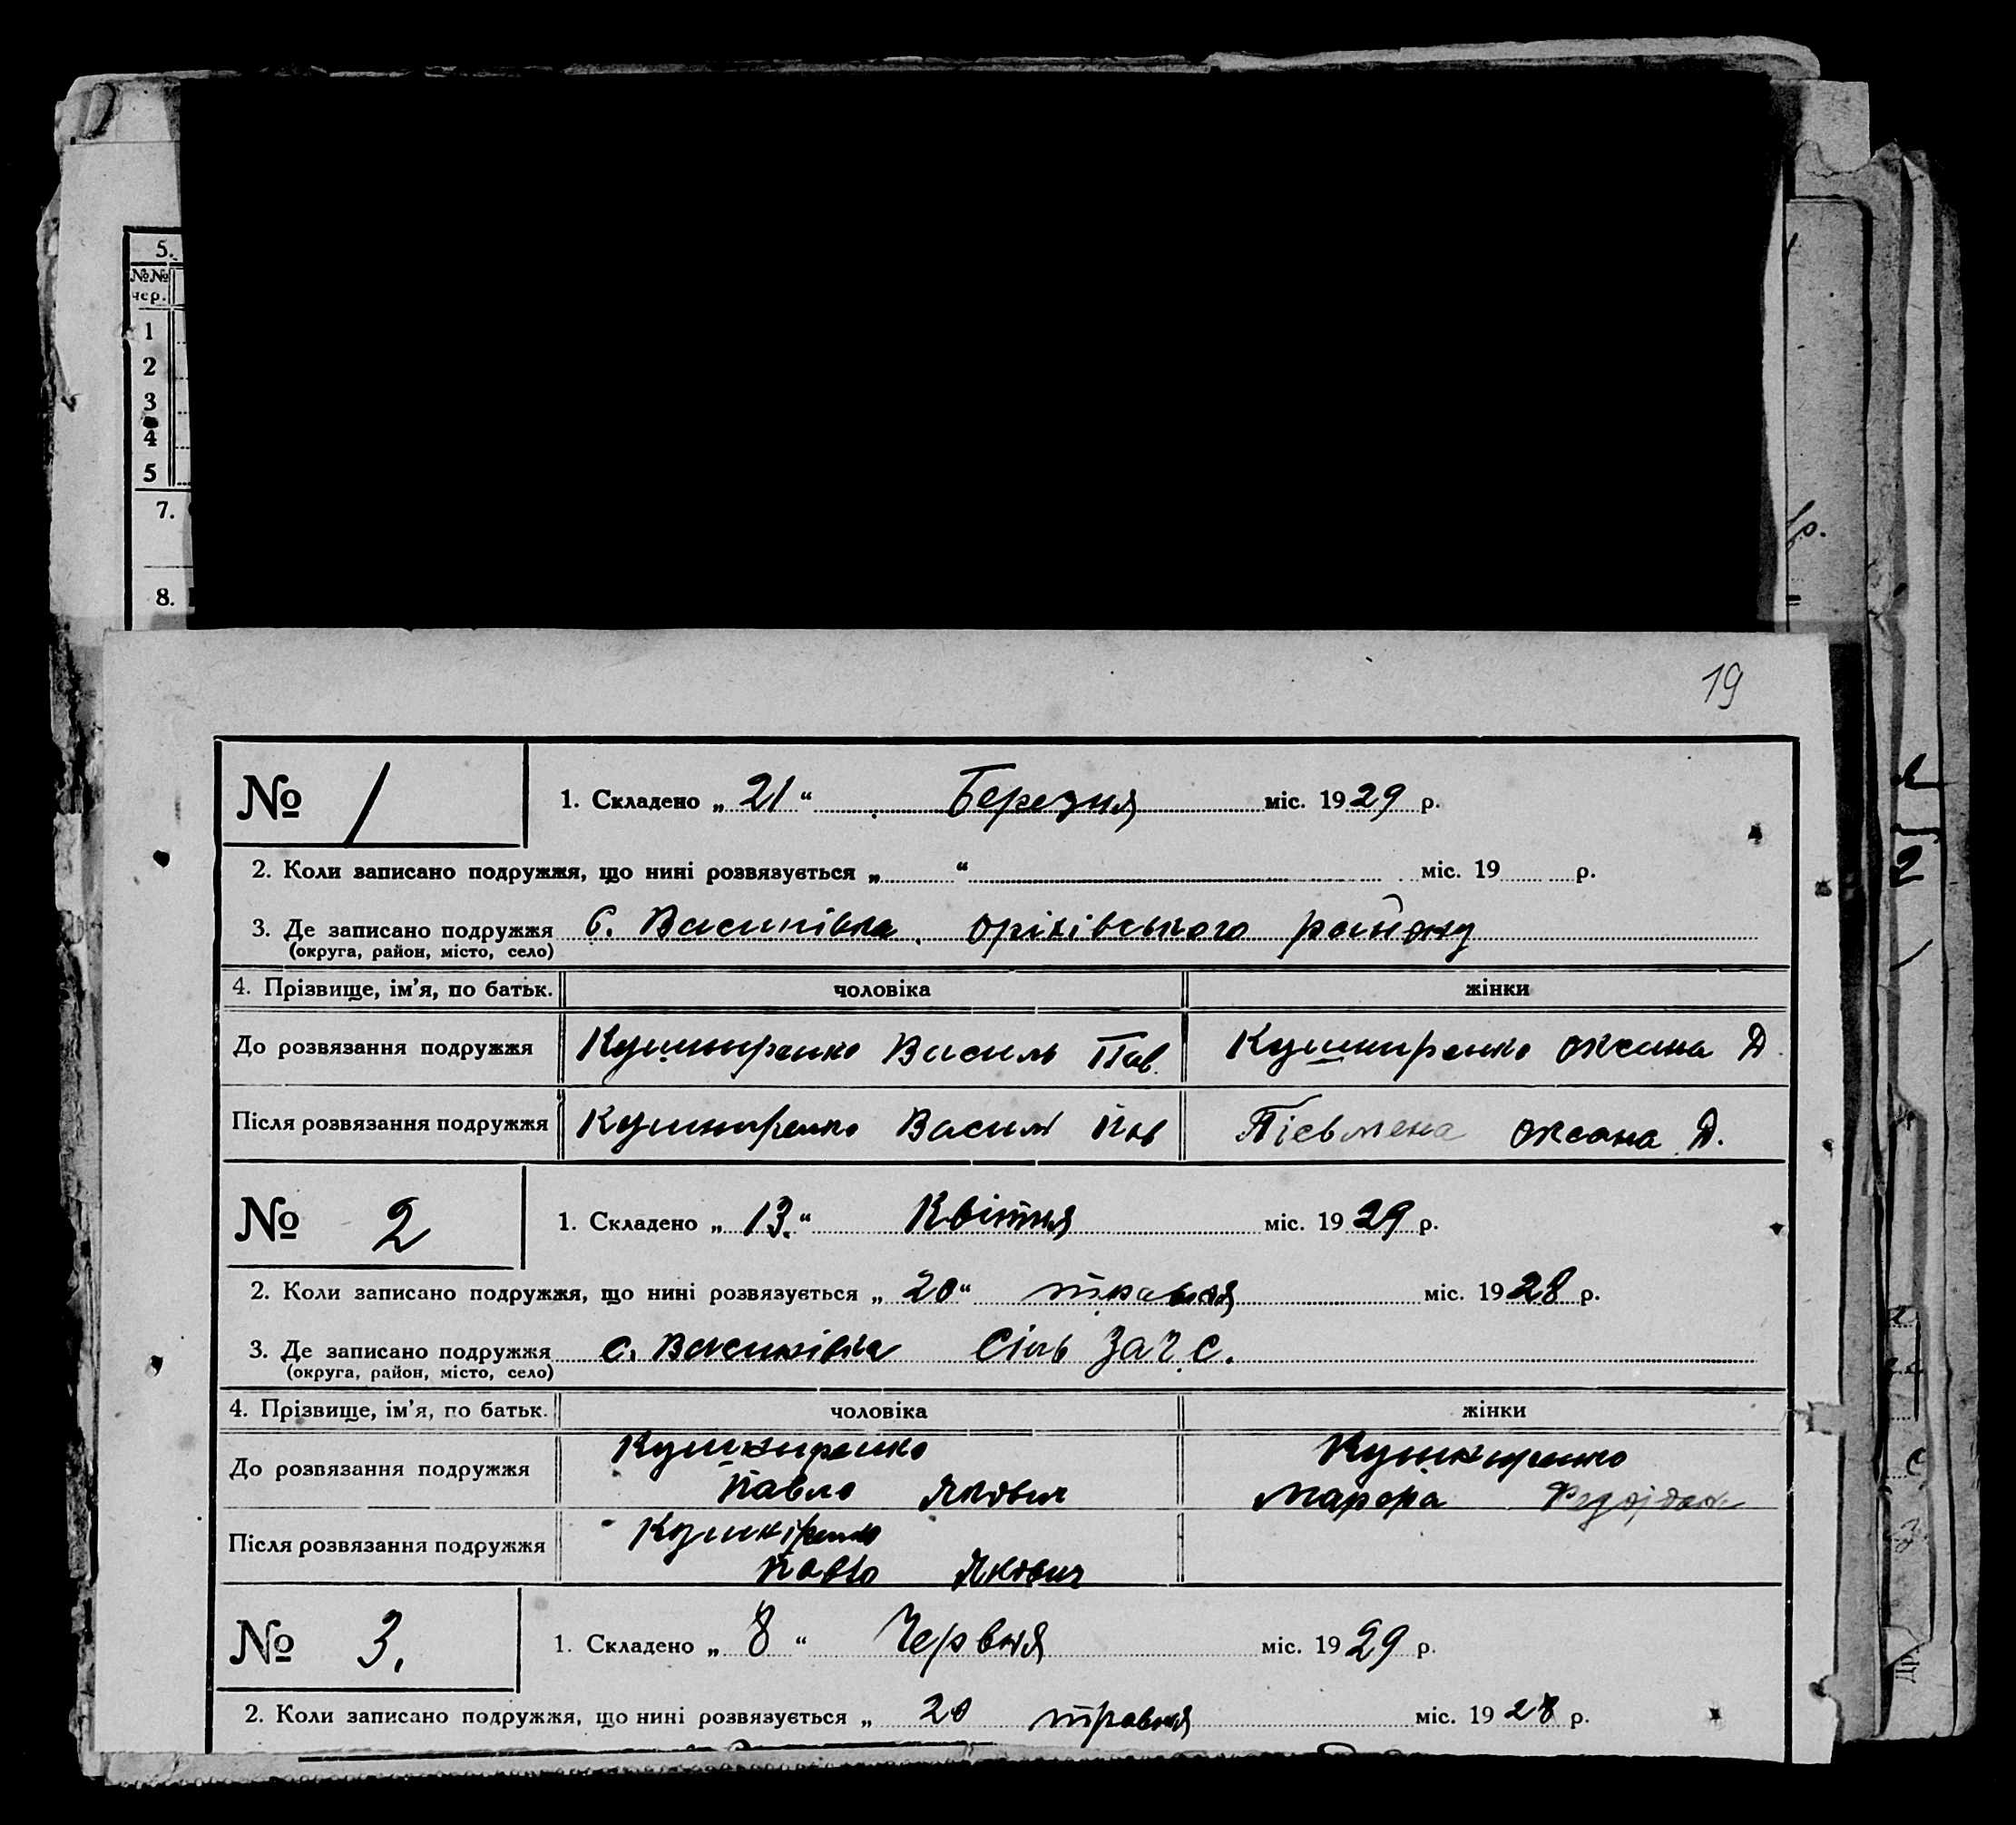 5.
№№
чер.
1
2
3
4
5
7.
8.
р.
19
№ 1
1. Складено „ 21 “ Березня міс. 1929 р.
2. Коли записано подружжя, що нині розвязується „ “ міс. 19 р.
3. Де записано подружжя с. Василівка оріхівського району
(округа, район, місто, село)
4. Прізвище, ім’я, по батьк. чоловіка жінки
До розвязання подружжя Кушниренко Василь Пав. Кушниренко Оксана Д.
Після розвязання подружжя Кушниренко Василь Пав Пісьмена Оксана Д.
№ 2
1. Складено „ 13. “ Квітня міс. 1929 р.
2. Коли записано подружжя, що нині розвязується „ 20 “ травня міс. 1928 р.
3. Де записано подружжя с. Василівка Сіль ЗАГС.
(округа, район, місто, село)
4. Прізвище, ім’я, по батьк. чоловіка жінки
До розвязання подружжя Кушниренко Павло Якович Кушниренко
Після розвязання подружжя Кушніренко Павло Якович
№ 3.
1. Складено „ 8 “ Червня міс. 1929 р.
2. Коли записано подружжя, що нині розвязується „ 20 травня міс. 1928 р.